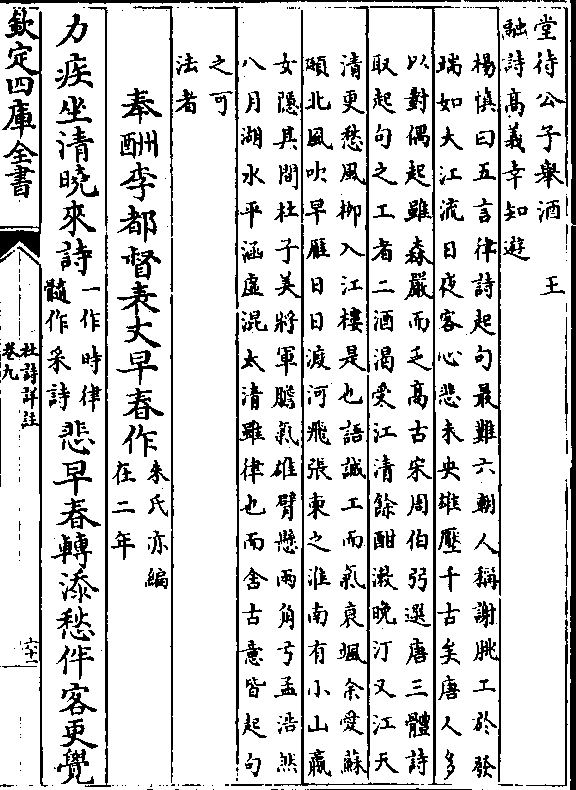 堂待公子舉酒　王
融詩高義幸知遊
楊慎曰五言律詩起句最難六朝人稱謝朓工於發
瑞如大江流日夜客心悲未央雄壓千古矣唐人多
以對偶起雖森嚴而乏高古宋周伯弜選唐三體詩
取起句之工者二酒渴愛江清餘酣漱晚汀又江天
清更愁風柳入江樓是也語誠工而氣衰颯余愛蘇
頲北風吹早雁日日渡河飛張柬之淮南有小山嬴
女隱其間杜子美將軍膽氣雄臂懸兩角弓孟浩然
八月湖水平涵虛混太清雖律也而含古意皆起句
之可
法者
奉酬李都督表丈早春作朱氏亦編在二年
力疾坐清曉來詩一作時律髓作采詩悲早春轉添愁伴客更覺
欽定四庫全書
杜詩詳註
卷九